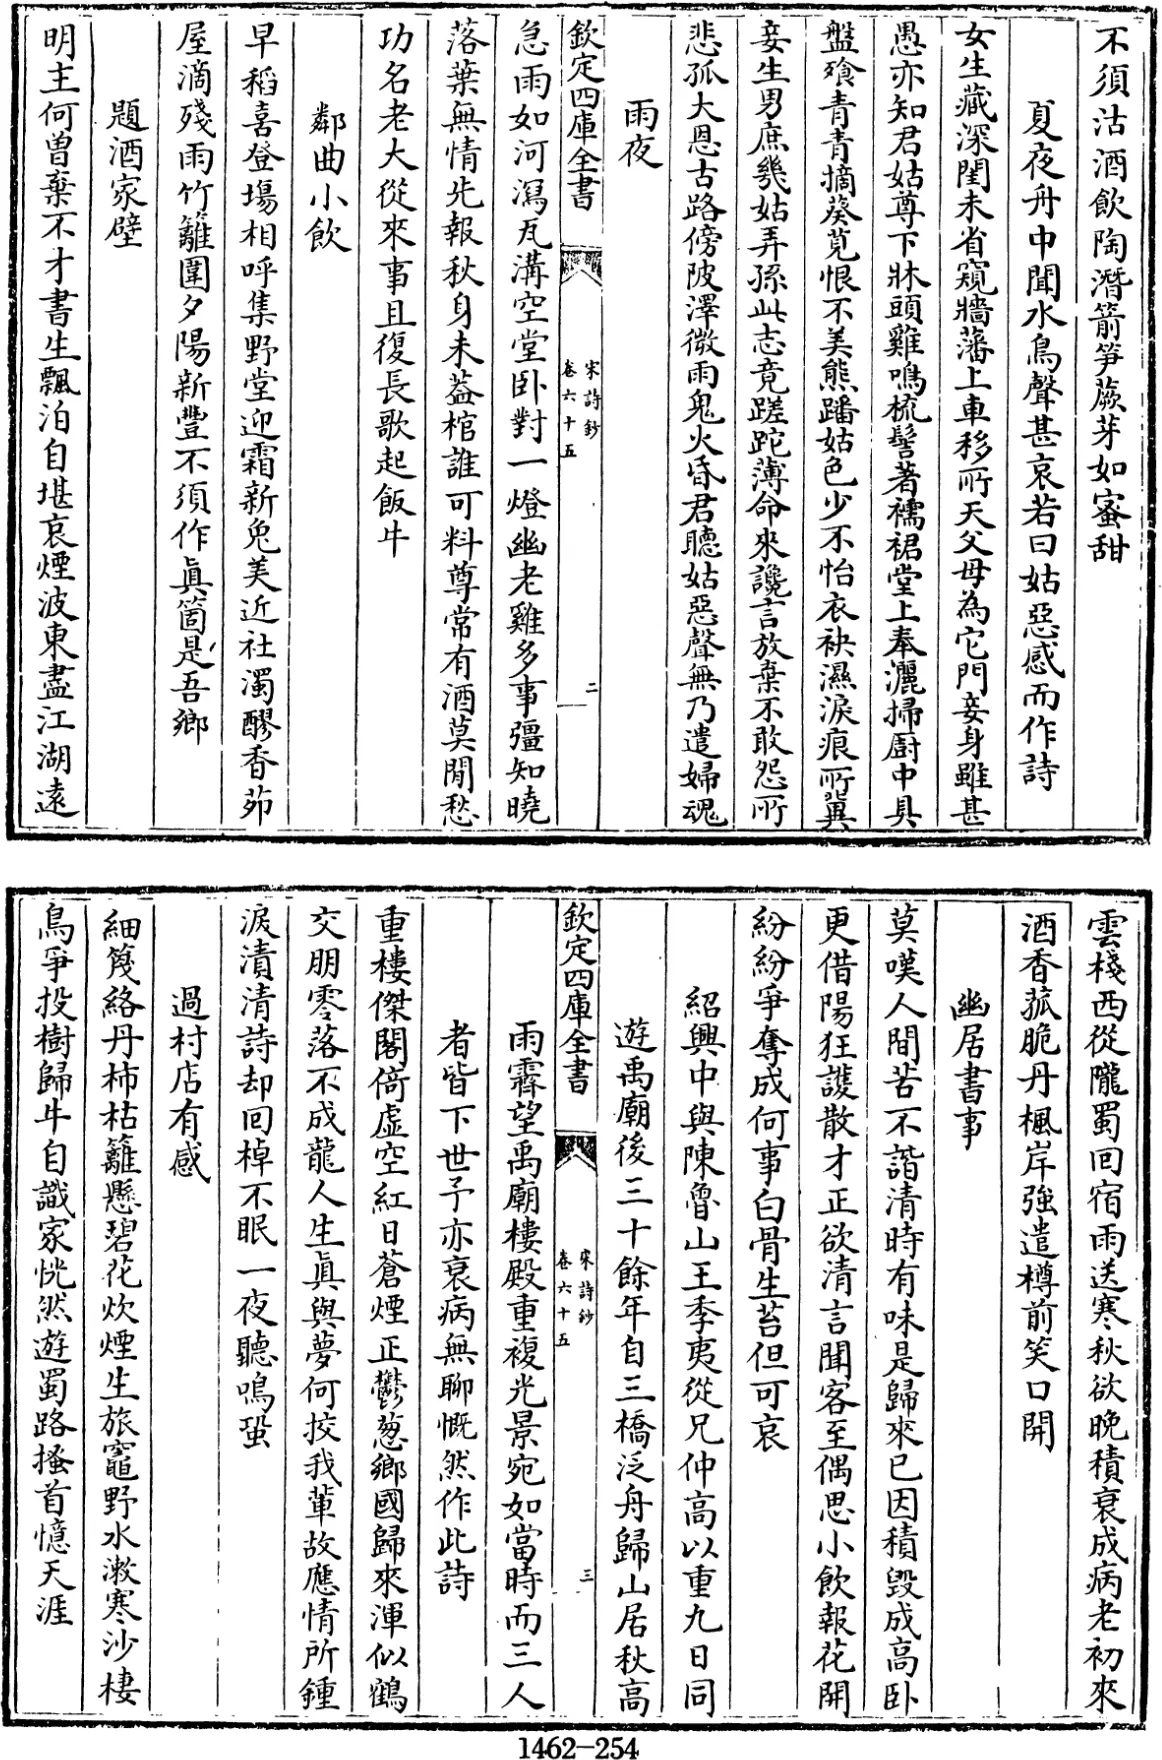 不須沽酒飲陶潛箭笋蕨芽如蜜甜
夏夜舟中聞水鳥聲甚哀若曰姑惡感而作詩
女生藏深閨未省窺牆藩上車移所天父母為它門妾身雖甚
愚亦知君姑尊下牀頭雞鳴梳髻著襦裙堂上奉灑掃厨中具
盤飱青青摘葵莧恨不美熊蹯姑色少不怡衣袂濕淚痕所冀
妾生男庶幾姑弄孫此志竟蹉跎薄命來讒言放棄不敢怨所
悲孤大恩古路傍陂澤微雨鬼火昏君聽姑惡聲無乃遣婦魂
雨夜
欽定四庫全書
宋詩鈔
卷六十五
二
急雨如河瀉瓦溝空堂卧對一燈幽老雞多事彊知曉
落葉無情先報秋身未葢棺誰可料尊常有酒莫閒愁
功名老大從來事且復長歌起飯牛
鄰曲小飲
早稻喜登塲相呼集野堂迎霜新兔美近社濁醪香茆
屋滴殘雨竹籬圍夕陽新豐不須作眞箇是吾鄉
題酒家壁
明主何曽棄不才書生飄泊自堪哀煙波東盡江湖遠
雲棧西從隴蜀回宿雨送寒秋欲晚積衰成病老初來
酒香菰脆丹楓岸強遣樽前笑口開
幽居書事
莫嘆人間苦不諧清時有味是歸來已因積毀成高卧
更借陽狂護散才正欲清言聞客至偶思小飲報花開
紛紛爭奪成何事白骨生苔但可哀
紹興中與陳魯山王季夷從兄仲高以重九日同
遊禹廟後三十餘年自三橋泛舟歸山居秋高
欽定四庫全書
宋詩鈔
卷六十五
三
雨霽望禹廟樓殿重複光景宛如當時而三人
者皆下世予亦衰病無聊慨然作此詩
重樓傑閣倚虛空紅日蒼煙正鬱葱鄉國歸來渾似鶴
交朋零落不成龍人生眞與夢何挍我輩故應情所鍾
淚漬清詩却回棹不眠一夜聽鳴蛩
過村店有感
細篾絡丹柿枯籬懸碧花炊煙生旅竈野水漱寒沙棲
鳥爭投樹歸牛自識家恍然遊蜀路搔首憶天涯
1462-254